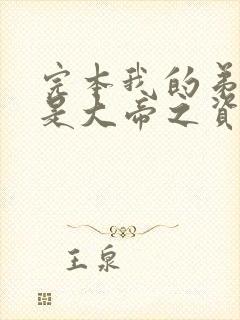 完本我的弟
是大帝之资
王泉